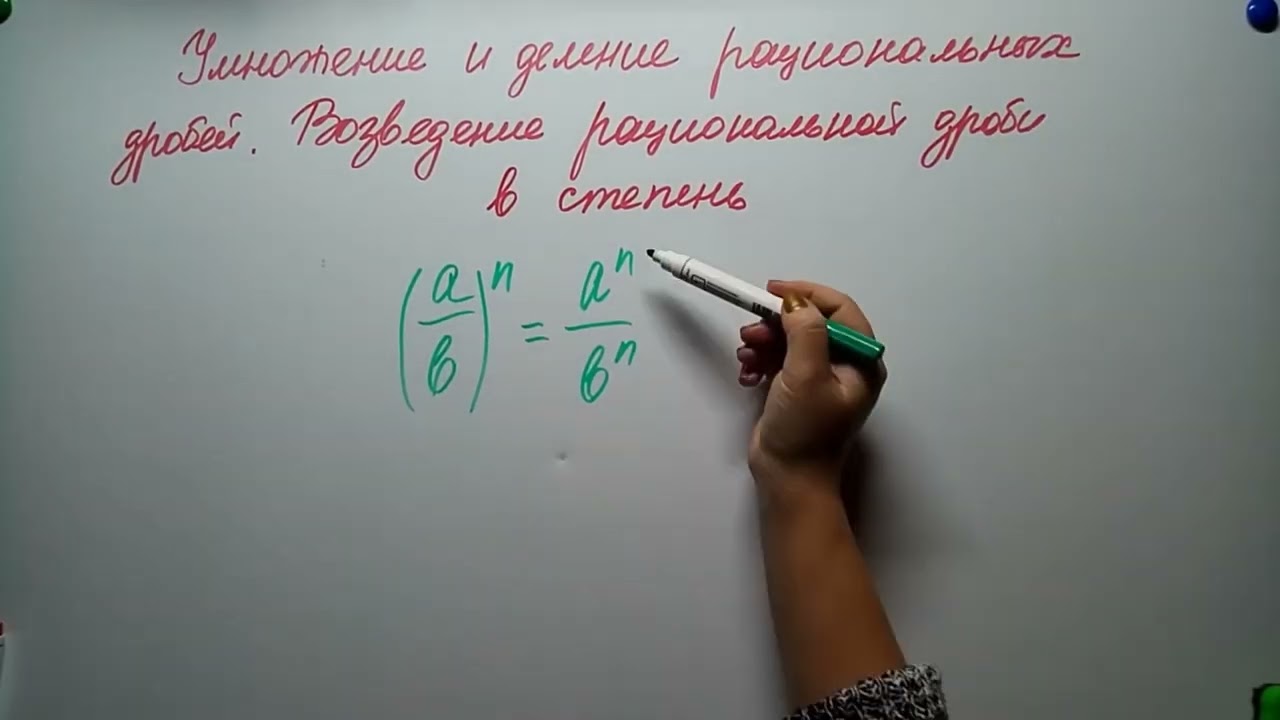 Умножение и деление рациональных
дробей. Возведение рациональной дроби
в степень
(a/b)ⁿ = aⁿ/bⁿ